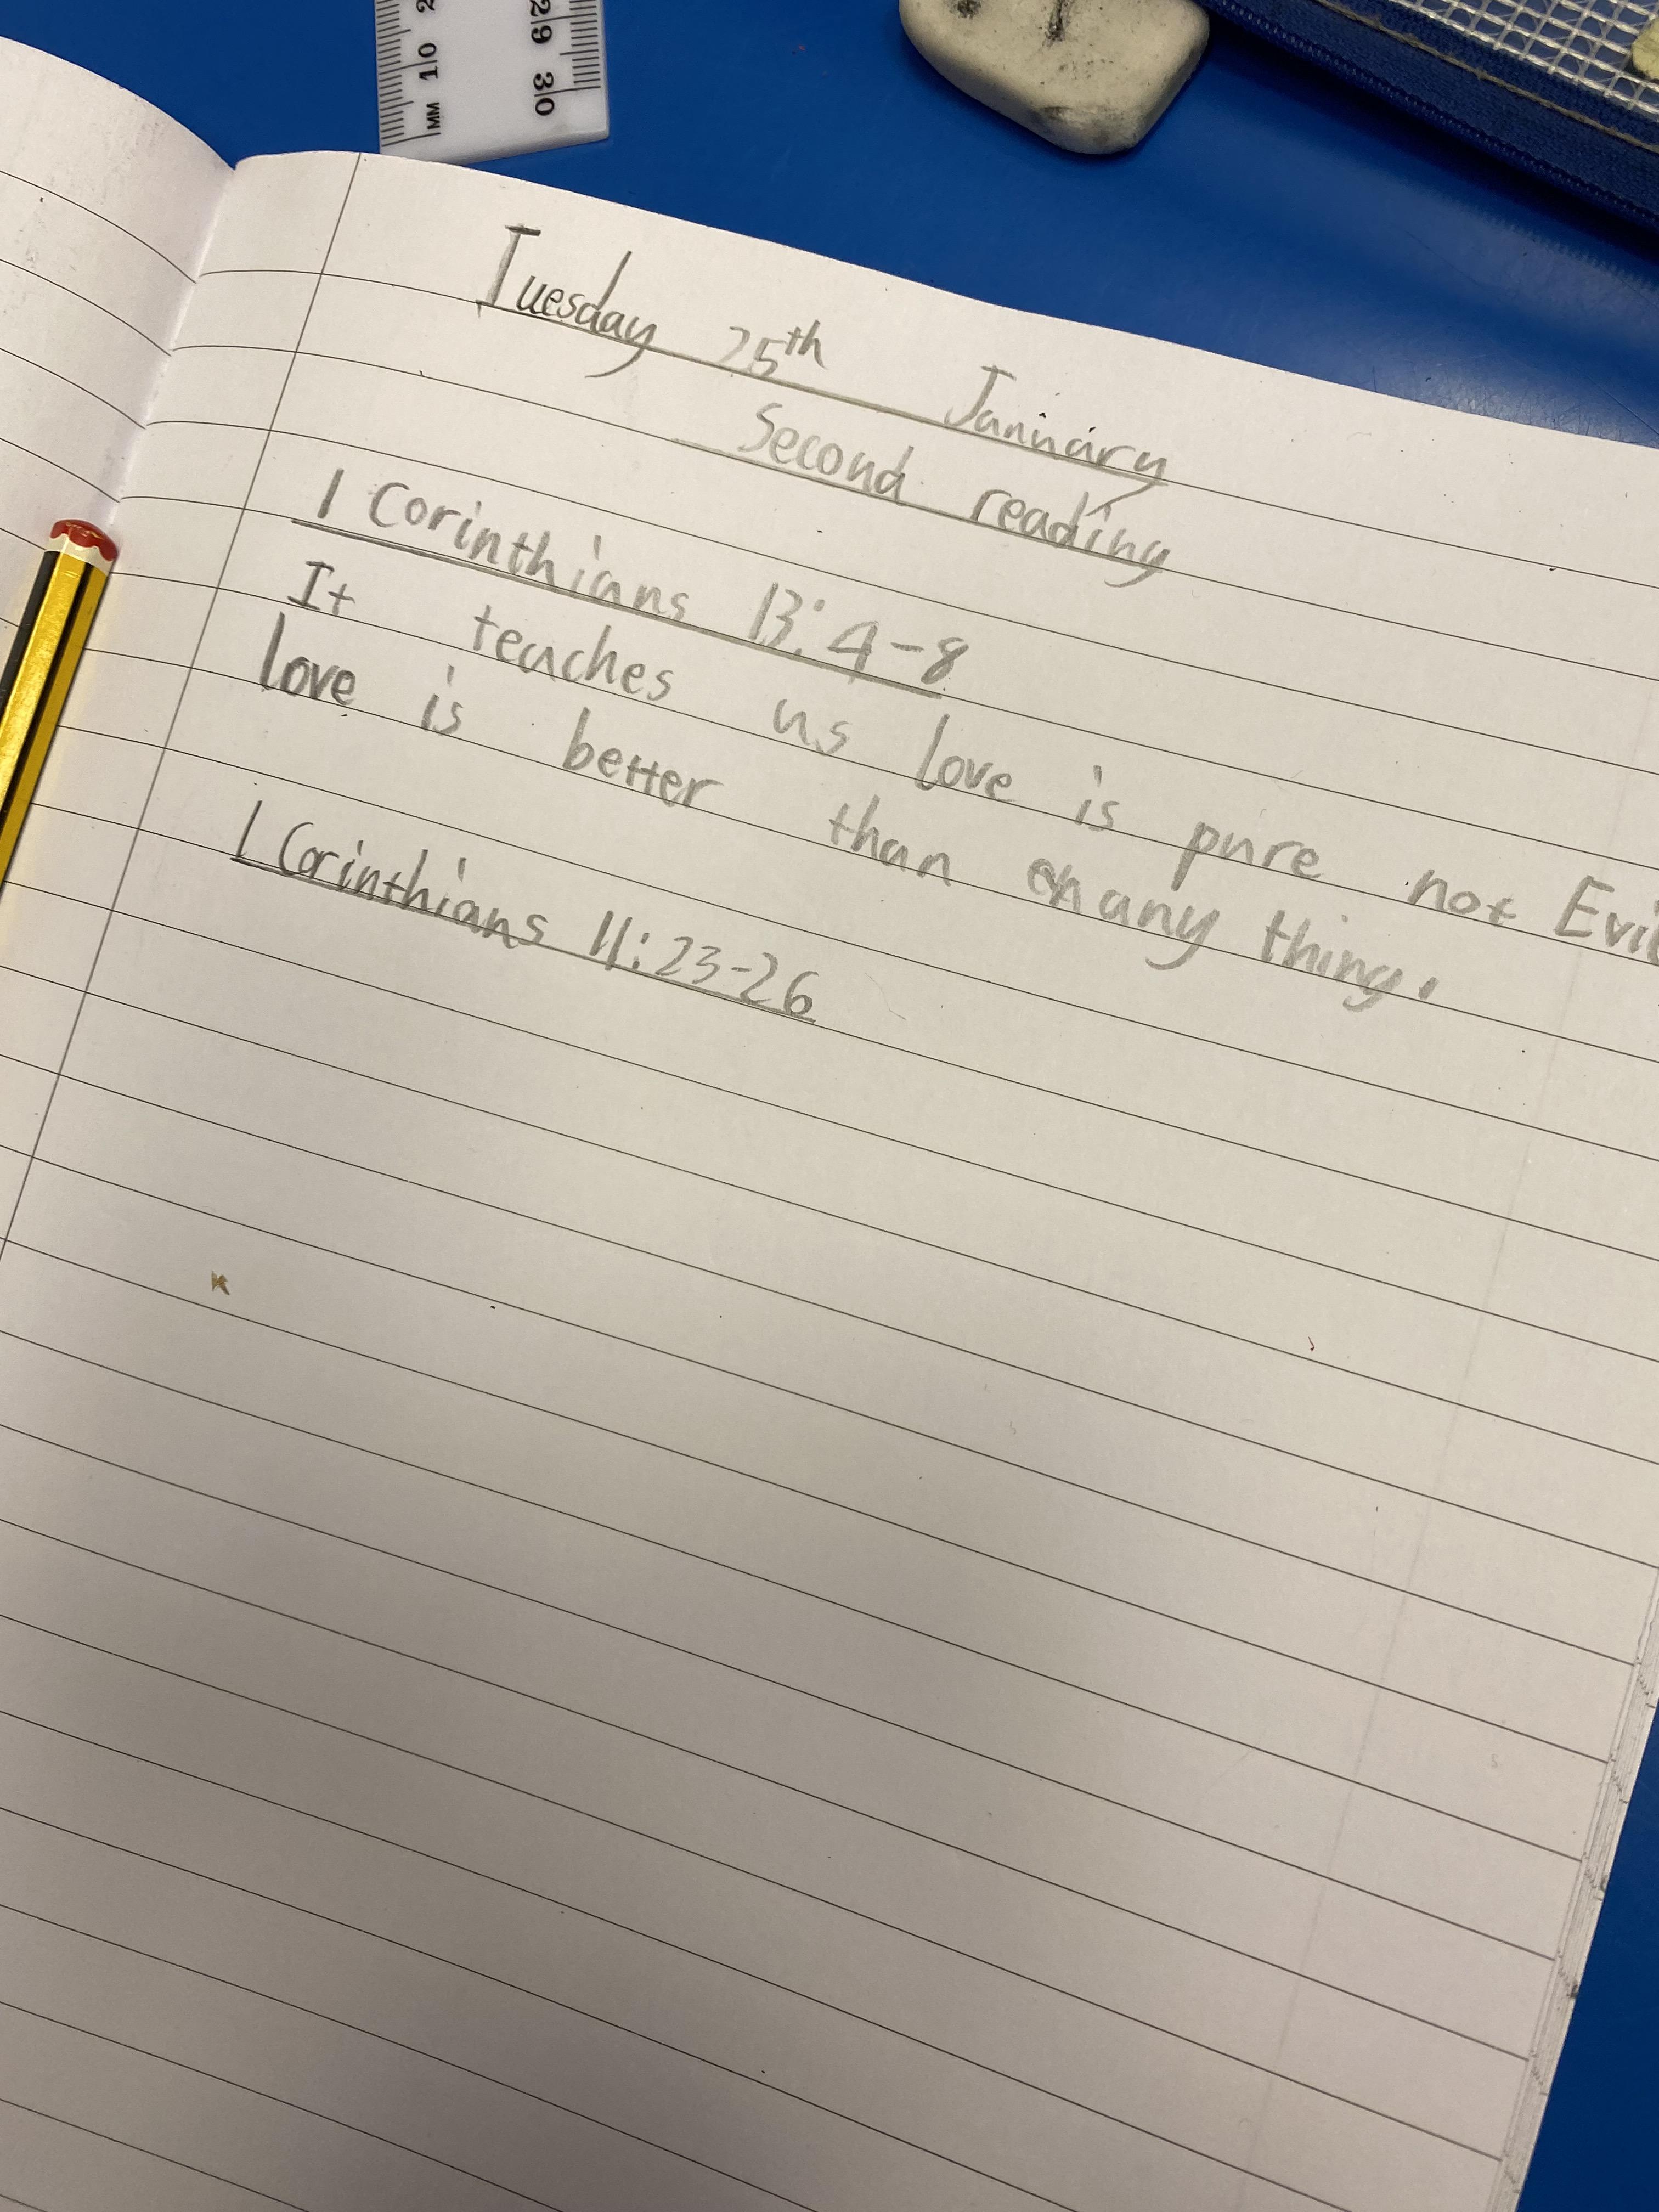 MM 10 2
29 30
Tuesday 25th January
Second reading
1 Corinthians 13:4-8
It teaches us love is pure not Evil
love is better than any thing.
1 Corinthians 11:23-26